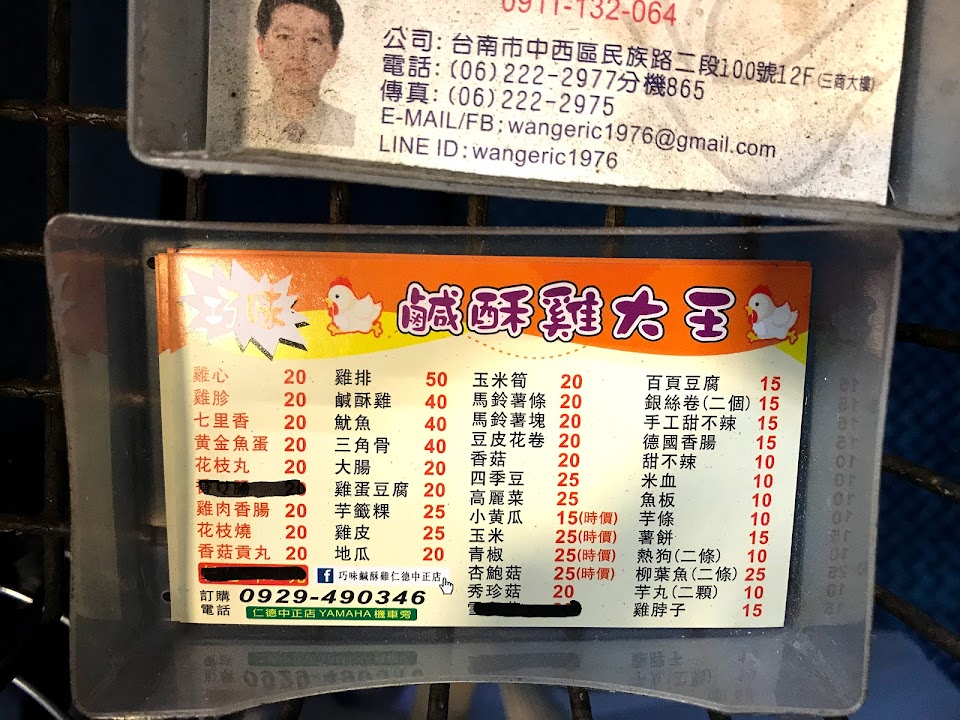 0911-132-064
公司：台南市中西區民族路二段100號12F(三商大樓)
電話：(06)222-2977分機865
傳真：(06)222-2975
E-MAIL/FB：wangeric1976@gmail.com
LINE ID：wangeric1976
巧味
鹹酥雞大王
雞心 20
雞胗 20
七里香 20
黃金魚蛋 20
花枝丸 20
雞肉香腸 20
花枝燒 20
香菇貢丸 20
雞排 50
鹹酥雞 40
魷魚 40
三角骨 40
大腸 20
雞蛋豆腐 20
芋籤粿 25
雞皮 25
地瓜 20
玉米筍 20
馬鈴薯條 20
馬鈴薯塊 20
豆皮花卷 20
香菇 20
四季豆 25
高麗菜 25
小黃瓜 15(時價)
玉米 25(時價)
青椒 25(時價)
杏鮑菇 25(時價)
秀珍菇 20
百頁豆腐 15
銀絲卷(二個) 15
手工甜不辣 15
德國香腸 15
甜不辣 10
米血 10
魚板 10
芋條 10
薯餅 15
熱狗(二條) 10
柳葉魚(二條) 25
芋丸(二顆) 10
雞脖子 15
f 巧味鹹酥雞仁德中正店
訂購電話 0929-490346
仁德中正店 YAMAHA 機車旁